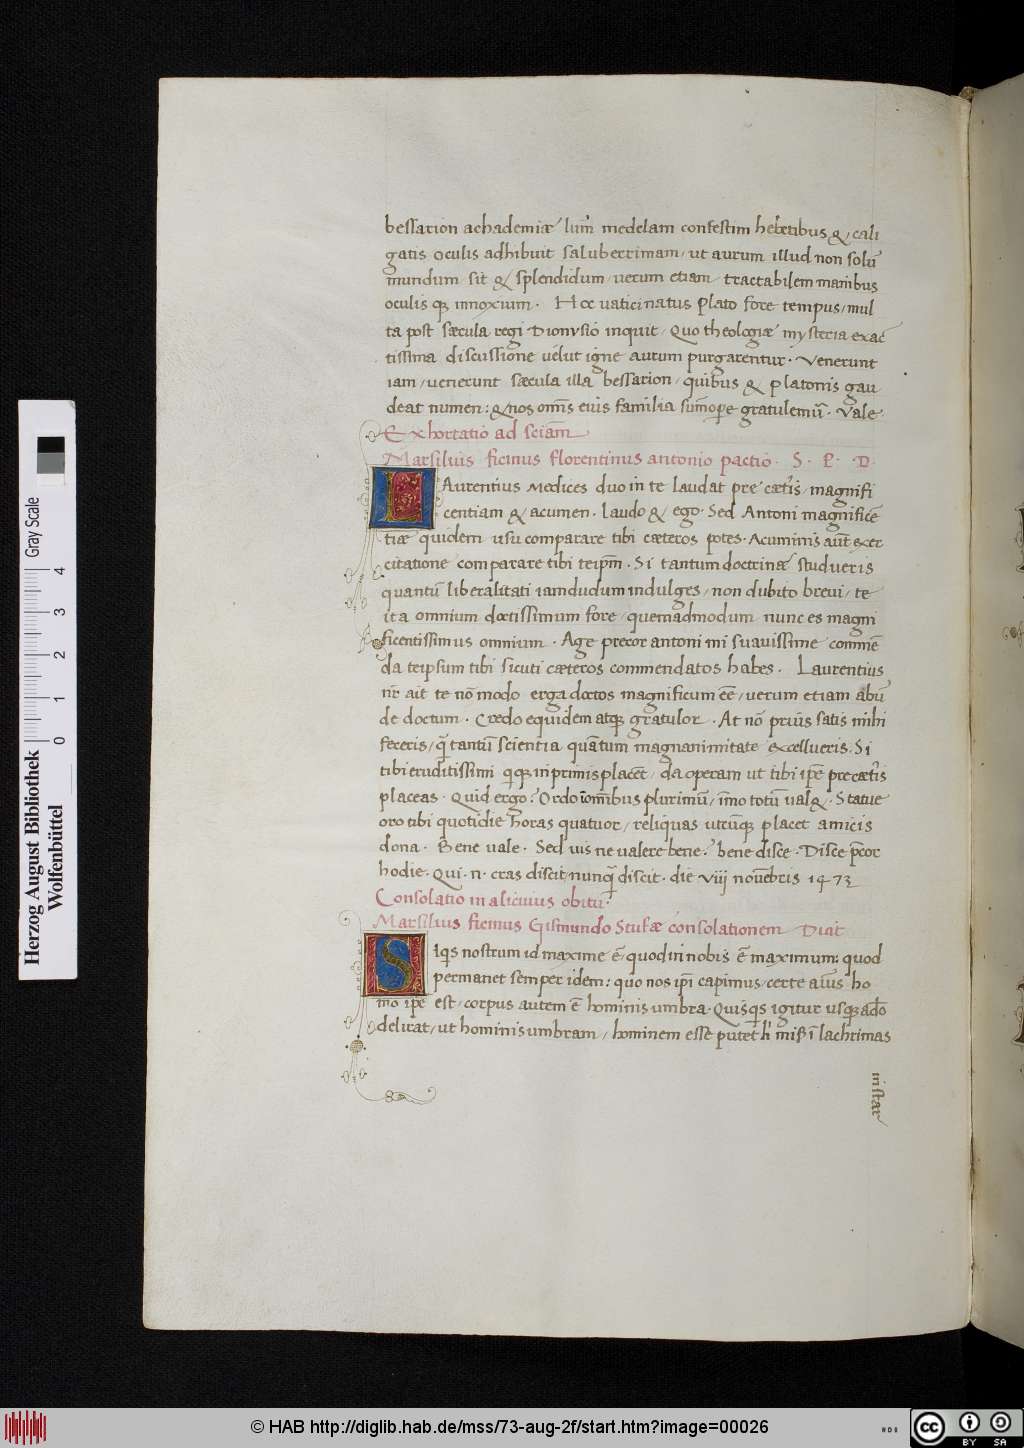 bessarion achademiæ lum̄ medelam confestim hebetibus & cali
gatis oculis adhibuit saluberrimam / ut aurum illud non solū
mundum sit & splendidum / uerum etiam / tractabilem manibus
oculisq; innoxium . Hoc uaticinatus Plato fore tempus / mul
ta post sæcula regi Dionysio inquit / Quo theologiæ mysteria exac
tissima discussione uelut igne aurum purgarentur . Venerunt
iam / uenerunt sæcula illa bessarion / quibus & Platonis gau
deat numen : & nos om̄s eius familia sum̄opere gratulemur̄ . Vale
Exhortatio ad sciam̄
Marsilius ficinus florentinus antonio pactio . S . P . D .
LAurentius Medices duo in te laudat pre cæter̄is / magnifi
centiam & acumen . laudo & ego . Sed Antoni magnificē
tiæ quidem usu comparare tibi cæteros potes . Acuminis aūt exer
citatione comparare tibi teipm̄ . Si tantum doctrinæ studueris
quantū liberalitati iamdudum indulges / non dubito breui / te
ita omnium doctissimum fore / quemadmodum nunc es magni
ficentissimus omnium . Age precor antoni mi suauissime commē
da teipsum tibi sicuti cæteros commendatos habes . Laurentius
nr̄ ait te nō modo erga doctos magnificum eē / uerum etiam abū
de doctum . Credo equidem atq; gratulor . At nō prius satis mihi
feceris / q̄ tantū scientia quātum magnanimitate excellueris . Si
tibi eruditissimi quiq; inprimis placēt / da operam ut tibi ip̄e pre cæter̄is
placeas . Quid ergo? Ordo ī om̄ibus plurimū / īmo totū ualet . Statue
oro tibi quotidie horas quatuor / reliquas utcūq; placet amicis
dona . Bene uale . Sed uis ne ualere bene? bene disce . Disce p̄cor
hodie . Qui . n . cras discit nunq̄ discit . die viij nouēbris 1473
Consolatio in alicuius obitu .
Marsilius ficinus Gismundo Stufæ consolationem Dicit
SIquis nostrum id maxime ē / quod in nobis ē maximum : quod
permanet semper idem : quo nos ip̄i capimus / certe aīus ho
mo ip̄e est / corpus autem ē hominis umbra . Quisquis igitur usq; adeo
delirat / ut hominis umbram / hominem esse putet hi mis̄ ī lachrimas
instar
Herzog August Bibliothek
Wolfenbüttel
Gray Scale
0 1 2 3 4
© HAB http://diglib.hab.de/mss/73-aug-2f/start.htm?image=00026
cc BY SA